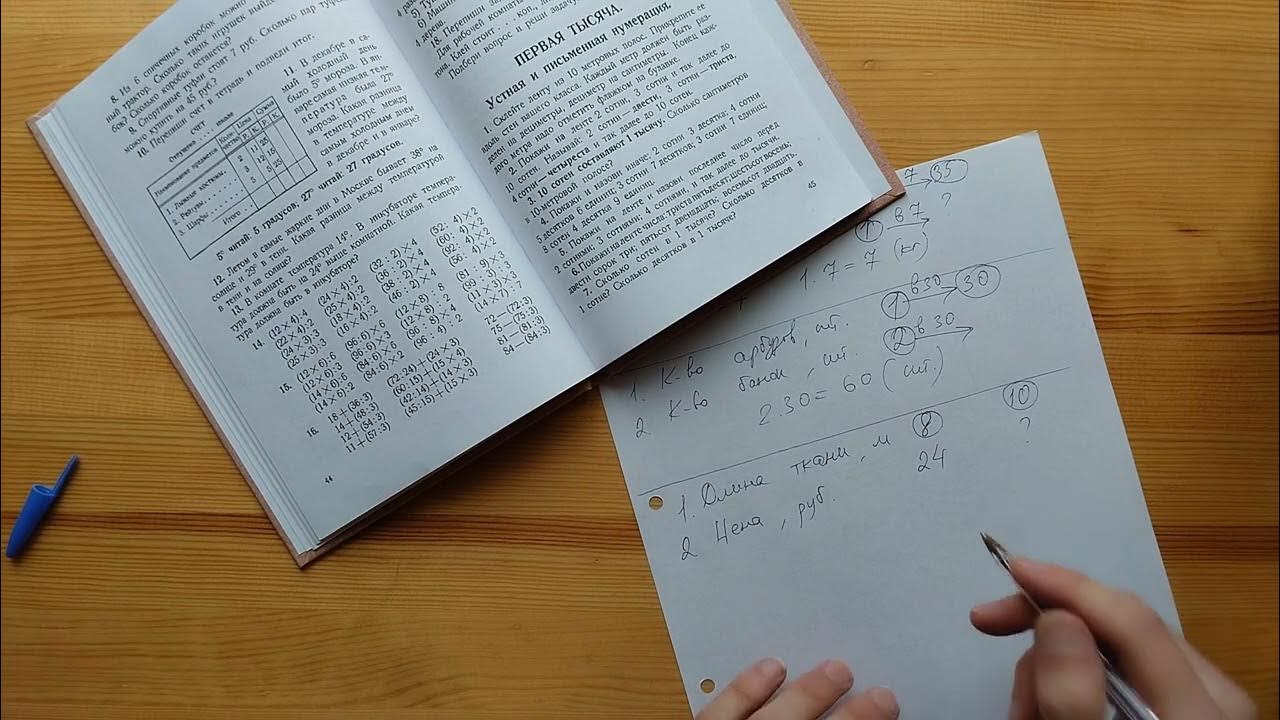 8. Из 6 спичечных коробок можно
ный трактор. Сколько таких игрушек выйдет
бок? Сколько коробок останется?
9. Спортивные туфли стоят 7 руб. Сколько пар туфель
можно купить на 45 руб.?
10. Перепиши счет в тетрадь и подведи итог.
счет
Наименование предметов
Количество
Цена
Сумма
Р. К. Р. К.
1. Лыжные костюмы
2
11
25
2. Рейтузы
3
12
15
3. Шарфы
5
5
25
Итого
11. В декабре в самый холодный день
было 5° мороза. В январе самая низкая температура была 27°
мороза. Какая разница
в температуре между
самым холодным днем
в декабре и в январе?
5° читай: 5 градусов, 27° читай: 27 градусов.
12. Летом в самые жаркие дни в Москве бывает 38° на
солнце и 29° в тени. Какая разница между температурой
в тени и на солнце?
13. В комнате температура 14°. В инкубаторе температура должна быть на 24° выше комнатной. Какая температура должна быть в инкубаторе?
14. (12 × 4) : 4
(22 × 4) : 2
(24 × 3) : 2
(25 × 3) : 3
(24 × 4) : 2
(25 × 4) : 2
(18 × 4) : 2
(16 × 4) : 2
(32 : 2) × 4
(36 : 2) × 4
(38 : 2) × 4
(46 : 2) × 4
15. (12 × 6) : 6
(12 × 6) : 3
(14 × 6) : 6
(14 × 6) : 2
(96 : 6) × 6
(84 : 6) × 2
(12 × 8) : 8
(12 × 8) : 2
(96 : 8) × 4
(96 : 4) : 2
(81 : 9) × 3
(11 × 3) × 3
(14 × 7) : 7
16. 18 + (36 : 3)
14 + (48 : 3)
12 + (54 : 3)
11 + (57 : 3)
(72 : 24) + (24 × 3)
(60 : 15) + (15 × 4)
(42 : 14) + (14 × 3)
(45 : 15) + (15 × 3)
72 — (72 : 3)
75 — (75 : 3)
81 — (81 : 3)
84 — (84 : 3)
44
18. Перепиши
Для рабочей комнаты
Клей стоит . . . коп.,
Подбери вопрос и реши задачу.
ПЕРВАЯ ТЫСЯЧА.
Устная и письменная нумерация.
1. Склейте ленту из 10 метровых полос. Прикрепите ее
вдоль стен вашего класса. Каждый метр должен быть разделен на дециметры, дециметр на сантиметры. Конец каждого метра надо отметить флажком на булавке.
2. Покажи на ленте 2 сотни, 3 сотни и так далее до
10 сотен. Называй: 2 сотни — двести, 3 сотни — триста,
4 сотни — четыреста и так далее до 10 сотен.
3. 10 сотен составляют 1 тысячу. Сколько сантиметров
в 10-метровой полоске?
4. Покажи и назови иначе: 2 сотни 3 десятка; 4 сотни
5 десятков 6 единиц; 3 сотни 7 десятков; 3 сотни 7 единиц;
8 сотен 4 десятка 9 единиц.
5. Покажи на ленте и назови последнее число перед
2 сотнями; 3 сотнями; 4 сотнями, и так далее до тысячи.
6. Покажи на ленте числа: триста пятьдесят; шестьсот восемь;
двести сорок три; пятьсот двенадцать; восемьсот двадцать.
7. Сколько сотен в 1 тысяче? Сколько десятков в
1 сотне? Сколько десятков в 1 тысяче?
45
7 35
1 в 7 ?
1.7 = 7 (кг)
1. К-во арбузов, шт. 1 в 30 30
2 К-во банок, шт. 2 в 30
2.30 = 60 (шт.)
1. Длина ткани, м 8 10
2 Цена, руб. 24 ?